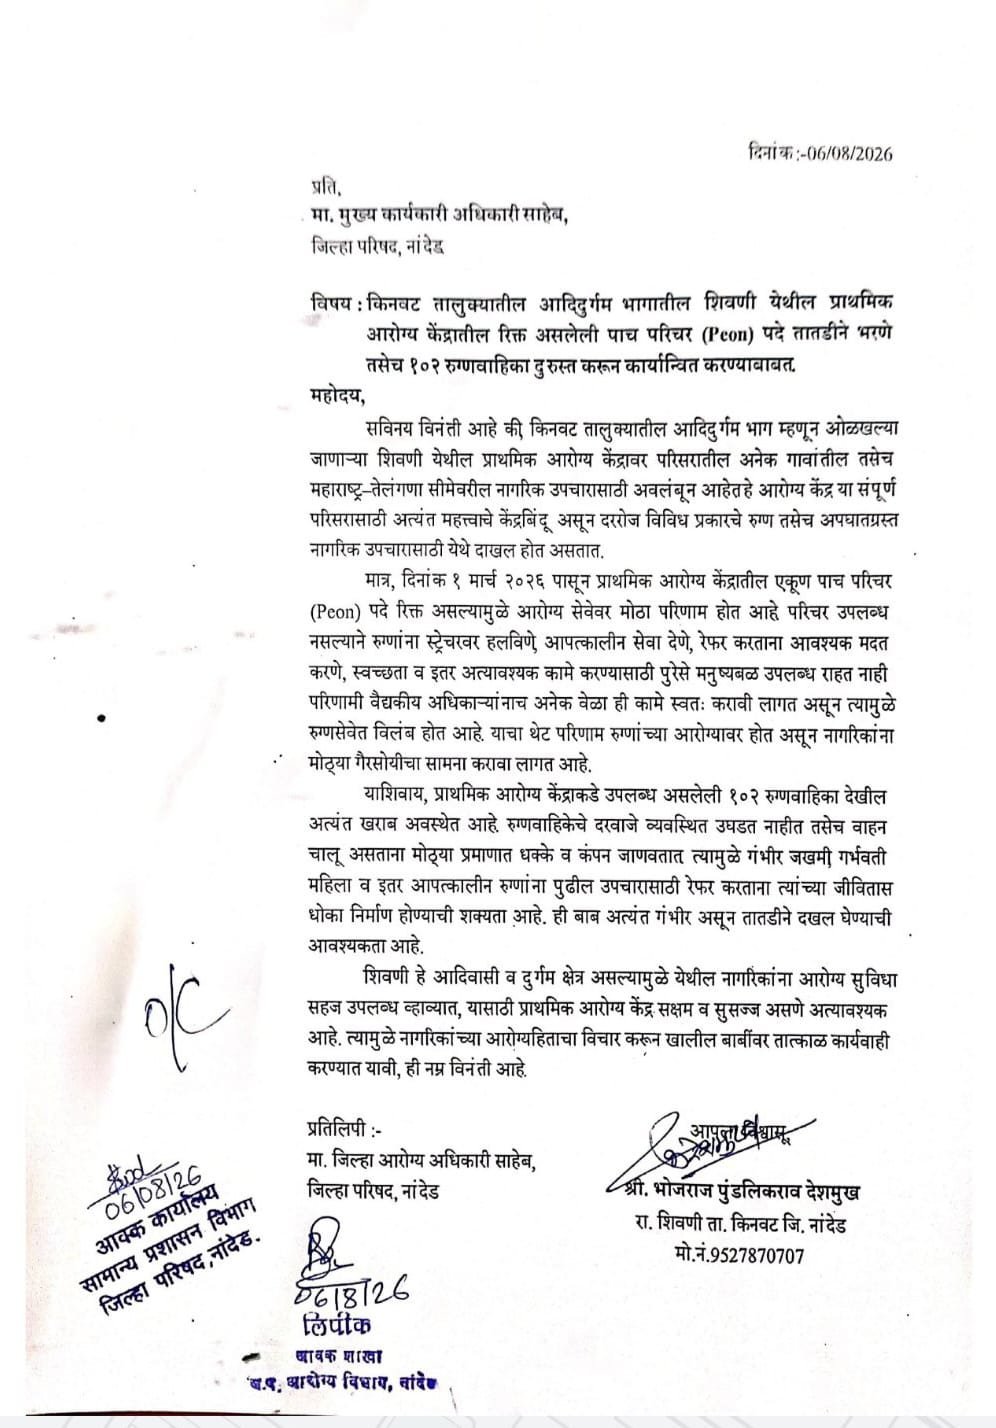 दिनांक :-06/08/2026
प्रति,
मा. मुख्य कार्यकारी अधिकारी साहेब,
जिल्हा परिषद, नांदेड
विषय : किनवट तालुक्यातील आदिदुर्गम भागातील शिवणी येथील प्राथमिक
आरोग्य केंद्रातील रिक्त असलेली पाच परिचर (Peon) पदे तातडीने भरणे
तसेच १०२ रुग्णवाहिका दुरुस्त करून कार्यान्वित करण्याबाबत.
महोदय,
सविनय विनंती आहे की, किनवट तालुक्यातील आदिदुर्गम भाग म्हणून ओळखल्या
जाणाऱ्या शिवणी येथील प्राथमिक आरोग्य केंद्रावर परिसरातील अनेक गावांतील तसेच
महाराष्ट्र–तेलंगणा सीमेवरील नागरिक उपचारासाठी अवलंबून आहेतहे आरोग्य केंद्र या संपूर्ण
परिसरासाठी अत्यंत महत्त्वाचे केंद्रबिंदू असून दररोज विविध प्रकारचे रुग्ण तसेच अपघातग्रस्त
नागरिक उपचारासाठी येथे दाखल होत असतात.
मात्र, दिनांक १ मार्च २०२६ पासून प्राथमिक आरोग्य केंद्रातील एकूण पाच परिचर
(Peon) पदे रिक्त असल्यामुळे आरोग्य सेवेवर मोठा परिणाम होत आहे. परिचर उपलब्ध
नसल्याने रुग्णांना स्ट्रेचरवर हलविणे, आपत्कालीन सेवा देणे, रेफर करताना आवश्यक मदत
करणे, स्वच्छता व इतर अत्यावश्यक कामे करण्यासाठी पुरेसे मनुष्यबळ उपलब्ध राहत नाही
परिणामी वैद्यकीय अधिकाऱ्यांनाच अनेक वेळा ही कामे स्वतः करावी लागत असून त्यामुळे
रुग्णसेवेत विलंब होत आहे. याचा थेट परिणाम रुग्णांच्या आरोग्यावर होत असून नागरिकांना
मोठ्या गैरसोयीचा सामना करावा लागत आहे.
याशिवाय, प्राथमिक आरोग्य केंद्राकडे उपलब्ध असलेली १०२ रुग्णवाहिका देखील
अत्यंत खराब अवस्थेत आहे. रुग्णवाहिकेचे दरवाजे व्यवस्थित उघडत नाहीत तसेच वाहन
चालू असताना मोठ्या प्रमाणात धक्के व कंपन जाणवतात. त्यामुळे गंभीर जखमी, गर्भवती
महिला व इतर आपत्कालीन रुग्णांना पुढील उपचारासाठी रेफर करताना त्यांच्या जीवितास
धोका निर्माण होण्याची शक्यता आहे. ही बाब अत्यंत गंभीर असून तातडीने दखल घेण्याची
आवश्यकता आहे.
शिवणी हे आदिवासी व दुर्गम क्षेत्र असल्यामुळे येथील नागरिकांना आरोग्य सुविधा
सहज उपलब्ध व्हाव्यात, यासाठी प्राथमिक आरोग्य केंद्र सक्षम व सुसज्ज असणे अत्यावश्यक
आहे. त्यामुळे नागरिकांच्या आरोग्यहिताचा विचार करून खालील बाबींवर तात्काळ कार्यवाही
करण्यात यावी, ही नम्र विनंती आहे.
O/C
प्रतिलिपी :-
मा. जिल्हा आरोग्य अधिकारी साहेब,
जिल्हा परिषद, नांदेड
आपला विश्वासू
श्री. भोजराज पुंडलिकराव देशमुख
रा. शिवणी ता. किनवट जि. नांदेड
मो.नं.9527870707
06/08/26
आवक कार्यालय
सामान्य प्रशासन विभाग
जिल्हा परिषद,नांदेड.
06/8/26
लिपीक
आवक शाखा
आरोग्य विभाग, नांदेड